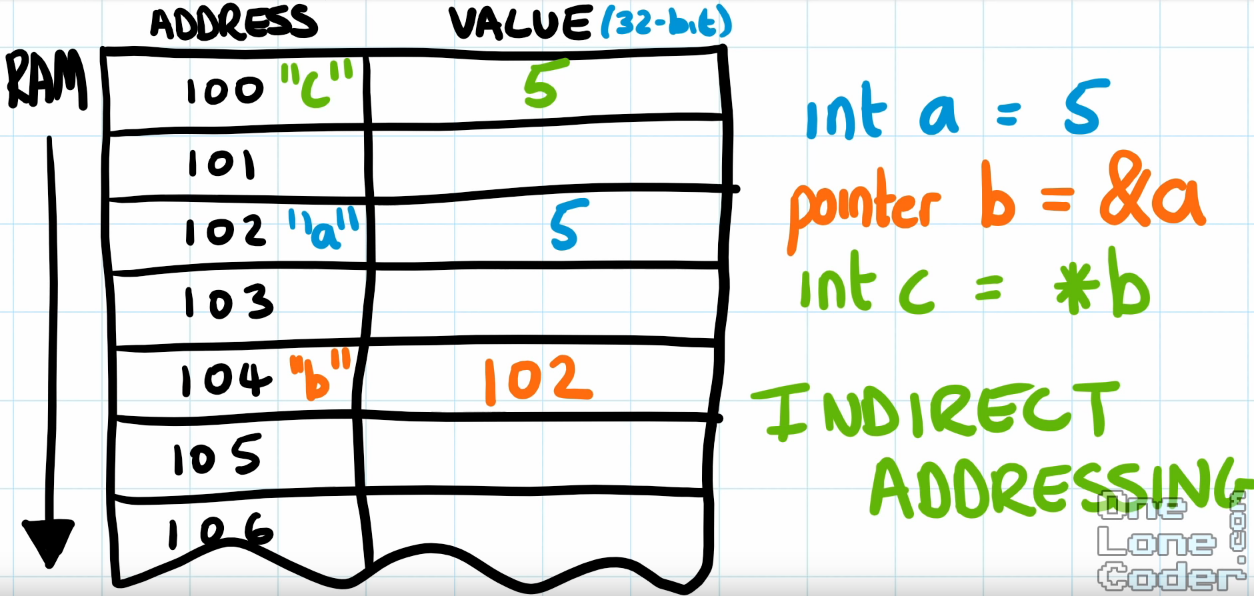 ADDRESS VALUE (32-bit)
RAM
100 "c" 5
101
102 "a" 5
103
104 "b" 102
105
106
int a = 5
pointer b = &a
int c = *b
INDIRECT
ADDRESSING
One
Lone
Coder.com